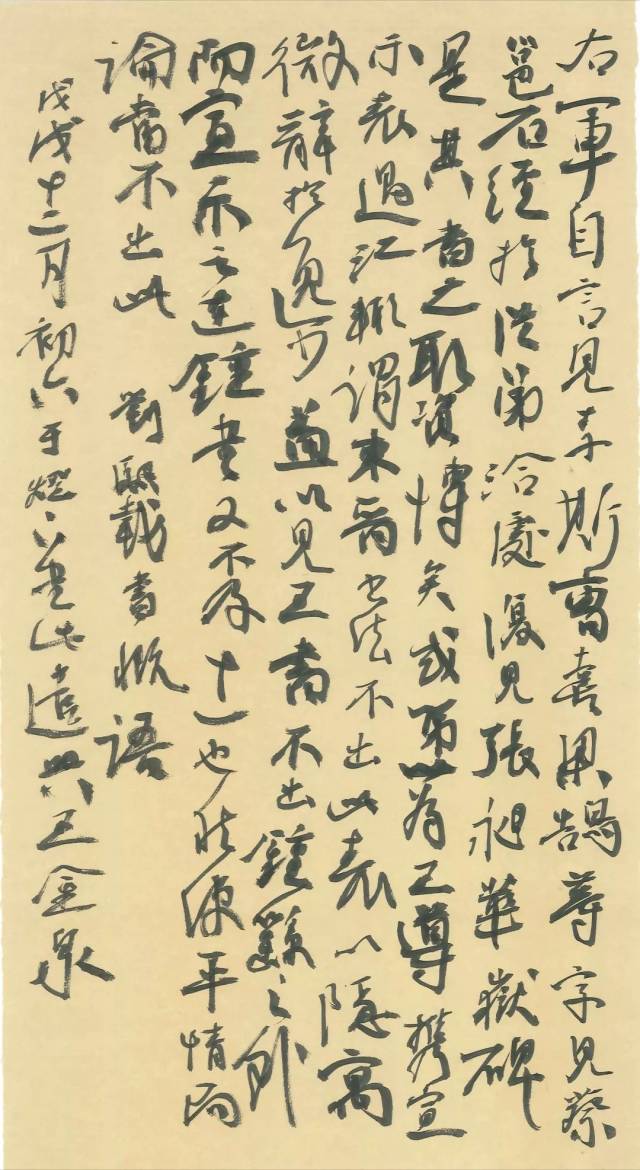 右軍自言見李斯曹喜梁鵠等字見蔡
邕石經於從弟洽處復見張昶華嶽碑
是其書之取資博矣或第以為王導攜宣
示表過江輒謂東晉書法不出此表以隱寓
微辭於逸少蓋以見王書不出鍾繇之外
而宣示之在鍾書又不及十一也然使平情而
論當不出此 劉熙載書概語
戊戌十二月初六于燈下書此遣興王金泉